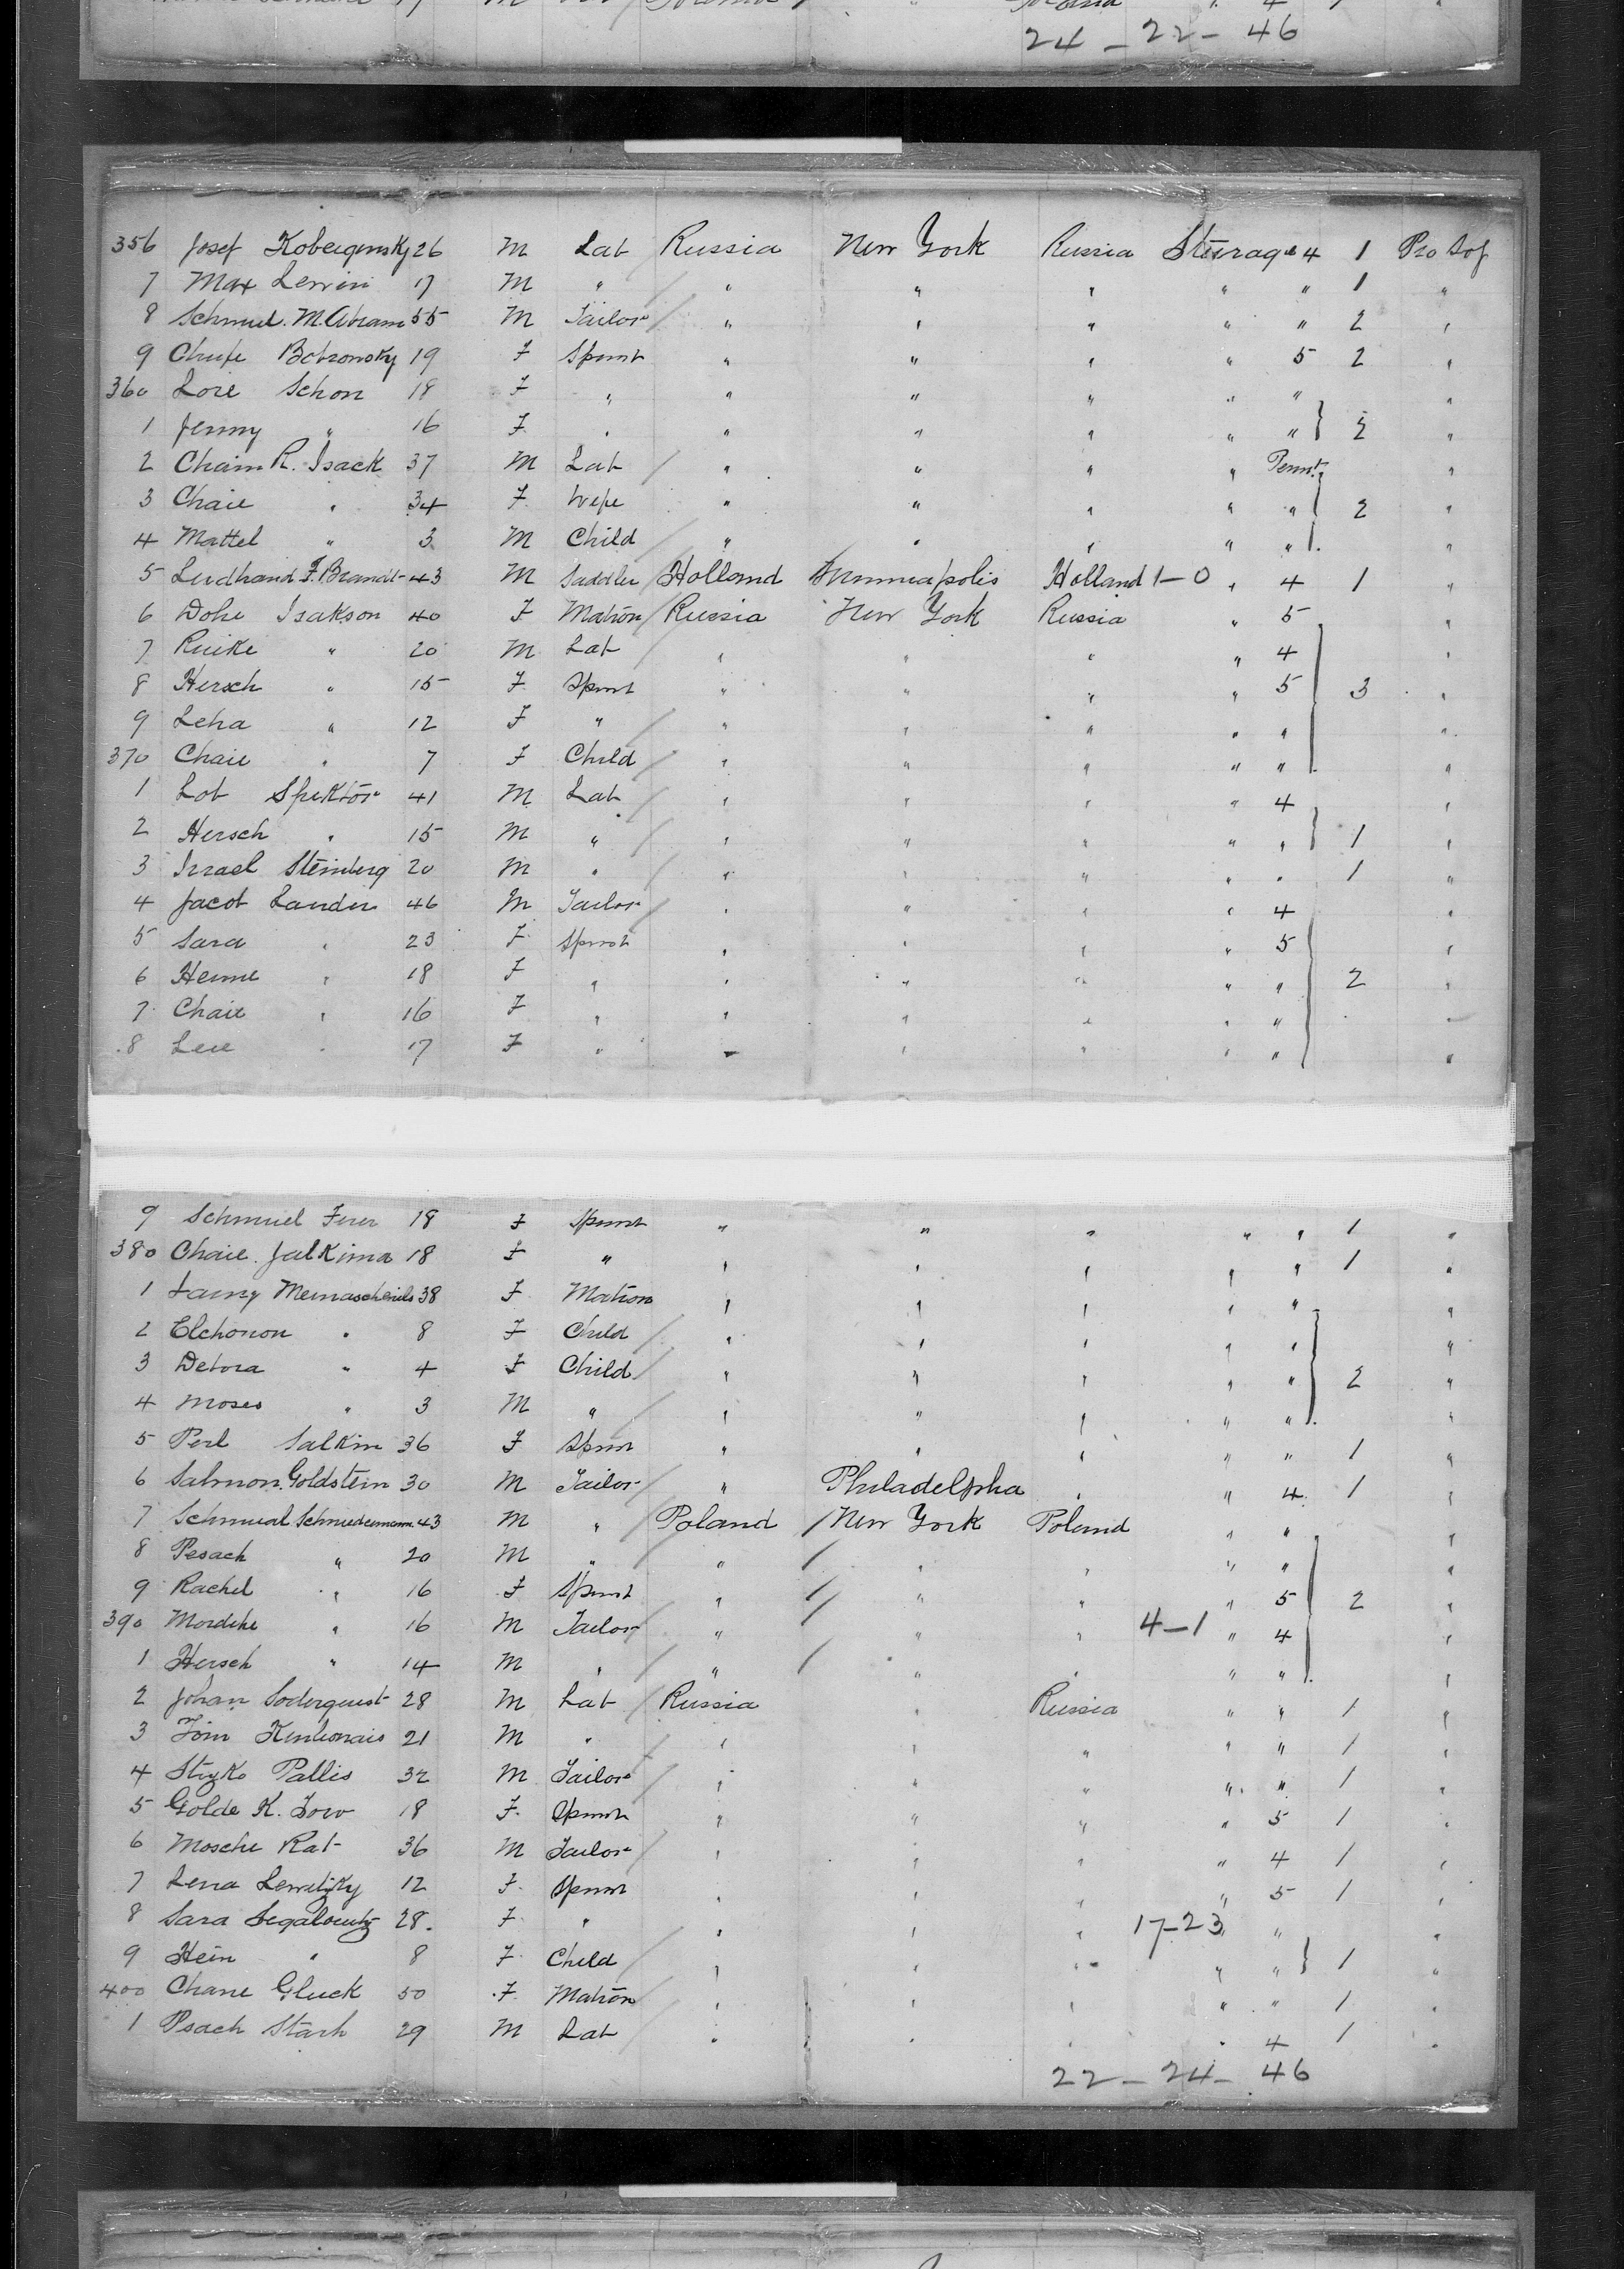 24 - 22 - 46
356 Josef 26 M Lab Russia New York Russia 4 1 Pro Sof
7 Max Lewin 17 M " / " " " " " 1 "
8 Schmul. M. Abram 55 M Tailor / " " " " " 2 "
9 Botronsky 19 F Spinst " " " " 5 2 "
360 Lore Schon 18 F " " " " " " "
1 Jenny " 16 F " " " " " " } 2 "
2 Chaim R. Isack 37 M Lab / " " " " "
3 Chaie " 34 F Wife " " " " " 2 "
4 Mattel " 3 M Child / " " " " " "
5 F. Brandt 43 M Saddler / Holland Minneapolis Holland 1-0 " 4 1 "
6 Dohe Isakson 40 F Matron / Russia New York Russia " 5 "
7 " 20 M Lab / " " " " 4 "
8 Hersch " 15 F Spinst " " " " 5 3 "
9 Leha " 12 F " / " " " " " "
370 Chaie " 7 F Child / " " " " " "
1 Lob Spektor 41 M Lab / " " " " 4 "
2 Hersch " 15 M " / " " " " " } 1 "
3 Israel Steinberg 20 M " / " " " " " 1 "
4 Jacob 46 M Tailor / " " " " 4 "
5 Sara " 23 F Spinst " " " " 5 "
6 Henne " 18 F " " " " " " 2 "
7 Chaie " 16 F " " " " " " "
8 " 17 F " " " " " " "
9 Schmuel Feuer 18 F Spinst " " " " " 1 "
380 Chaie Jalkima 18 F " " " " " " 1 "
1 Fanny 38 F Matron " " " " " "
2 Elchonon " 8 F Child / " " " " " "
3 Debora " 4 F Child / " " " " " 2 "
4 Moses " 3 M " / " " " " " "
5 Perl Salkin 36 F Spinst " " " " " 1 "
6 Salmon Goldstein 30 M Tailor / " Philadelphia " " 4 1 "
7 43 M " / Poland / New York Poland " " "
8 Pesach " 20 M " / " / " " " " "
9 Rachel " 16 F Spinst " / " " " 5 2 "
390 " 16 M Tailor / " " " 4-1 " 4 "
1 Hersch " 14 M " / " / " " " " "
2 Johan Soderquist 28 M Lab / Russia " Russia " " 1 "
3 21 M " / " " " " " 1 "
4 Pallis 32 M Tailor / " " " " " 1 "
5 Golde K. 18 F Spinst " " " " 5 1 "
6 Mosche Rat 36 M Tailor / " " " " 4 1 "
7 Lena Lewitzky 12 F Spinst " " " " 5 1 "
8 Sara 28 F " " " " 17-23 " " "
9 " 8 F Child / " " " " " } 1 "
400 Chane Gluck 50 F Matron / " " " " " 1 "
1 29 M Lab / " " " " 4 1 "
22 - 24 - 46